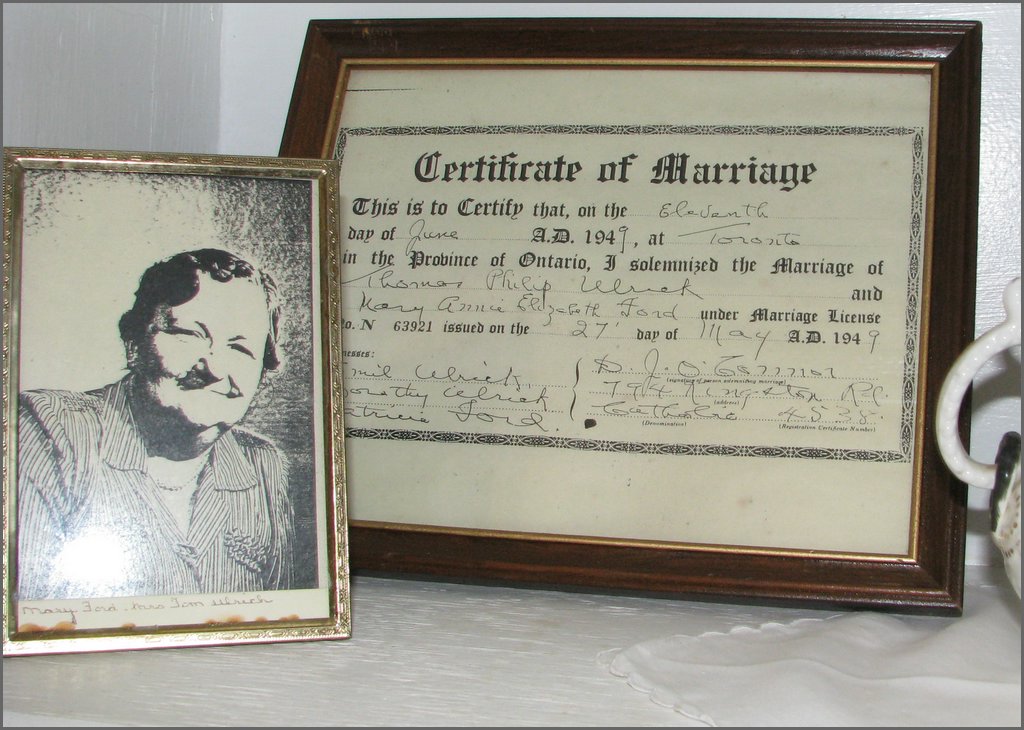 Certificate of Marriage
This is to Certify that, on the Eleventh
day of June A.D. 1949, at Toronto
in the Province of Ontario, I solemnized the Marriage of
Thomas Philip Ulrick and
Mary Annie Elizabeth Ford under Marriage License
No. N 63921 issued on the 27 day of May A.D. 1949
nesses:
mil Ulrick
orothy Ulrick
atricia Ford.
D. J. O'
(signature of person solemnizing marriage)
Kingston Rd.
(address)
Catholic
(Denomination) (Registration Certificate Number)
Mary Ford. Mrs Tom Ulrich